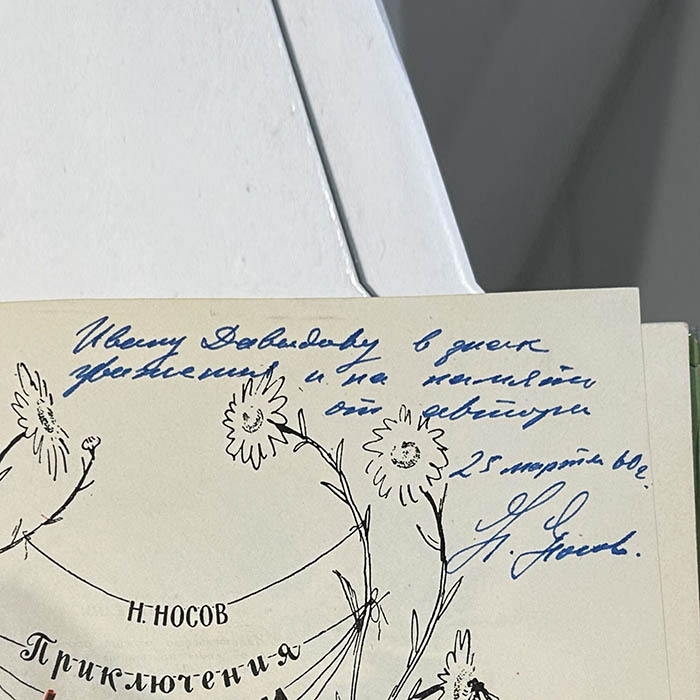 Ивану Давыдову в знак
уважения и на память
от автора
25 марта 60 г.
Н. Носов.
Н. НОСОВ
Приключения